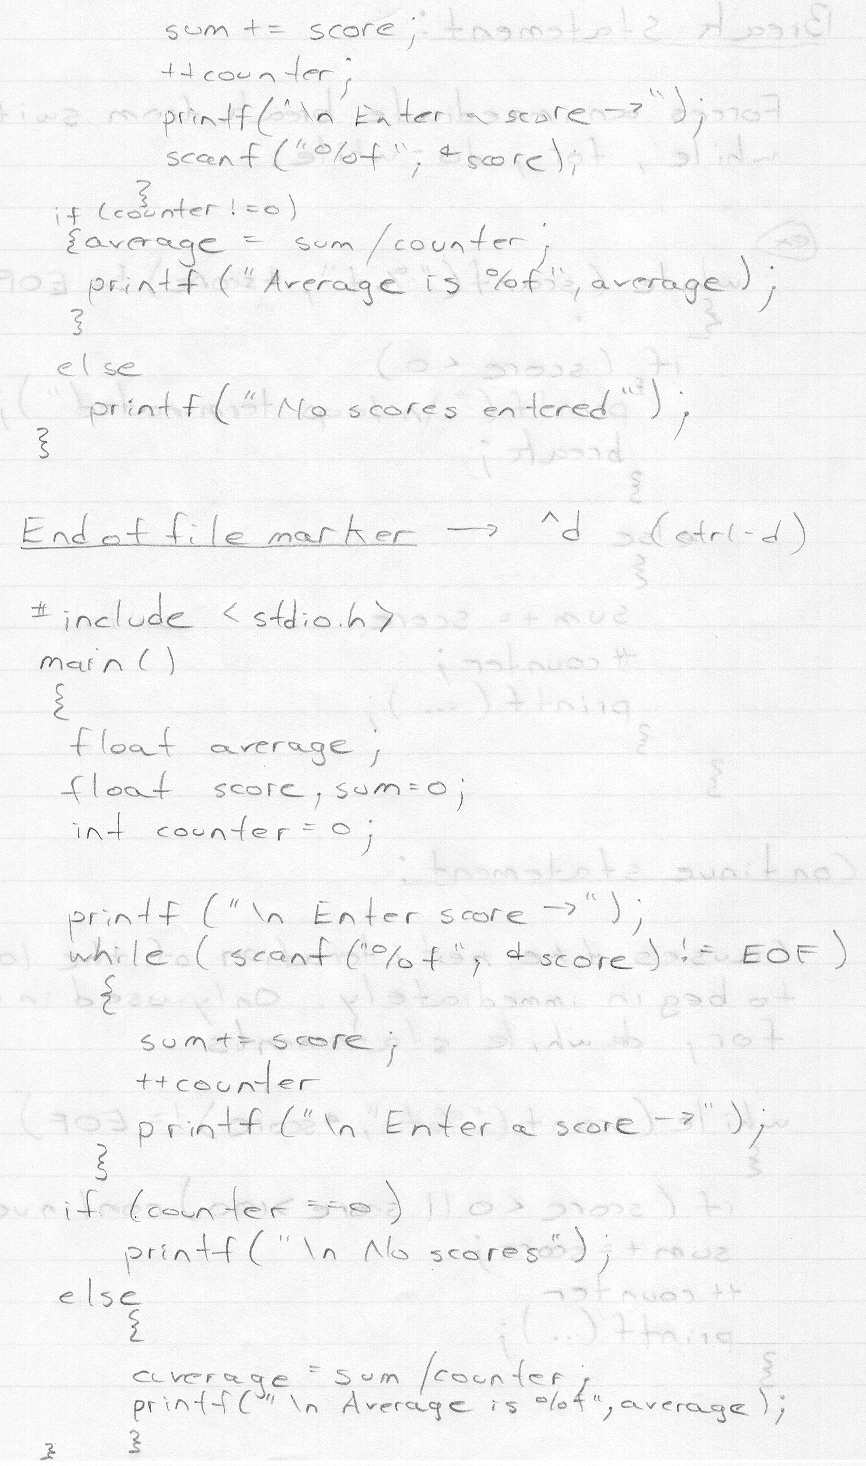 sum += score;
++counter;
printf("\n Enter a score →");
scanf("%f", &score);
}
if (counter != 0)
{average = sum /counter;
printf ("Average is %f", average);
}
else
printf("No scores entered");
}
End of file marker → ^d (ctrl-d)
#include <stdio.h>
main()
{
float average;
float score, sum=0;
int counter = 0;
printf ("\n Enter score →");
while ( scanf ("%f", &score) != EOF )
{
sum += score;
++counter
printf ("\n Enter a score →");
}
if (counter == 0)
printf ("\n No scores");
else
{
average = sum /counter;
printf(" \n Average is %f", average);
}
}